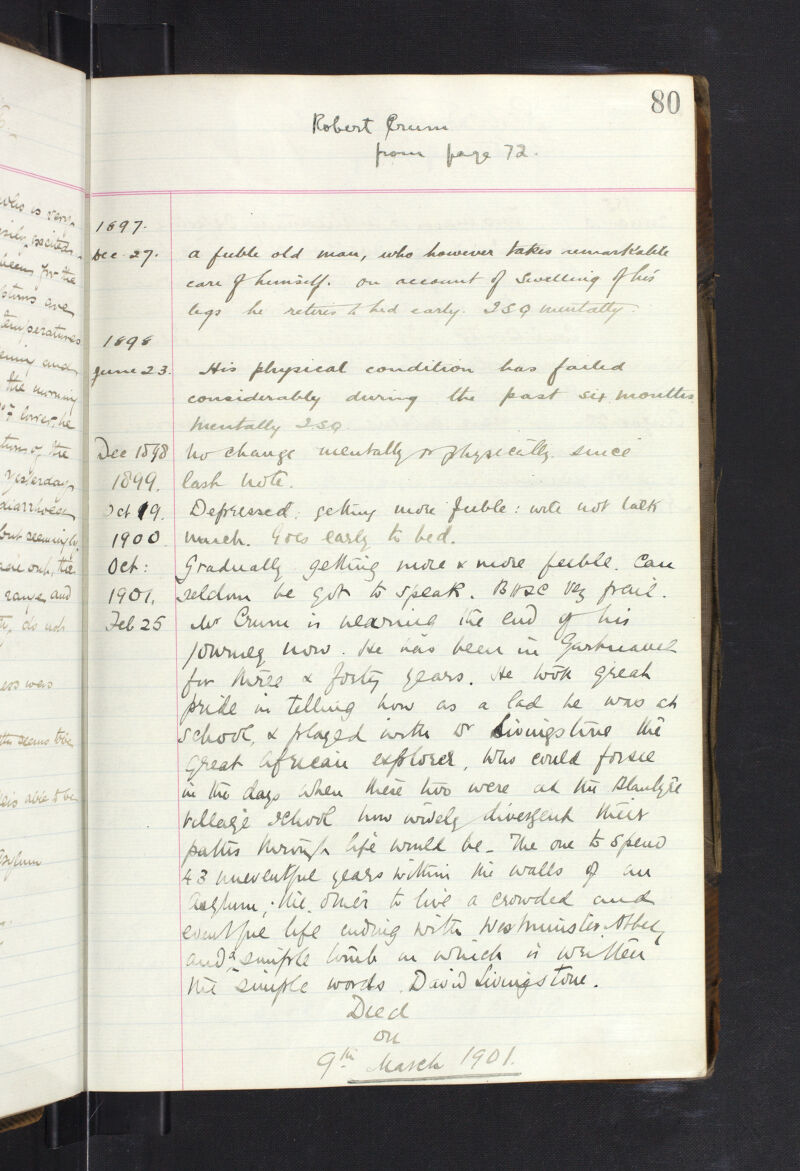 80
Robert Crum
from page 72.
1897.
Dec. 27. a feeble old man, who however takes remarkable
care of himself. on account of swelling of his
legs he retires to bed early. ISQ mentally.
1898
June 23. His physical condition has failed
considerably during the past six months.
mentally ISQ
Dec 1898 no change mentally or physically since
1899. last note.
Oct 19. Depressed: getting more feeble: will not talk
1900 much. Goes early to bed.
Oct: Gradually getting more & more feeble. Can
1901. seldom be got to speak. B&SC very frail.
Feb 25 Mr Crum is nearing the end of his
journey now. He has been in Gartnavel
for three & forty years. He took great
pride in telling how as a lad he was at
school, & played with Dr Livingstone the
great African explorer. Who could forsee
in the days when these two were at the Blantyre
village school how widely divergent their
paths through life would be_ The one to spend
43 uneventful years within the walls of an
Asylum; the other to live a crowded and
eventful life ending with Westminster Abbey
and a simple tomb on which is written
the simple words David Livingstone.
Died
on
9th March 1901.
who is very
easily excited
been for the
are
temperatures
evening and
the morning
lower, he
the
yesterday
diarrhoea
but seemingly
the
range and
do not
was
seems to be
is able to be
Asylum